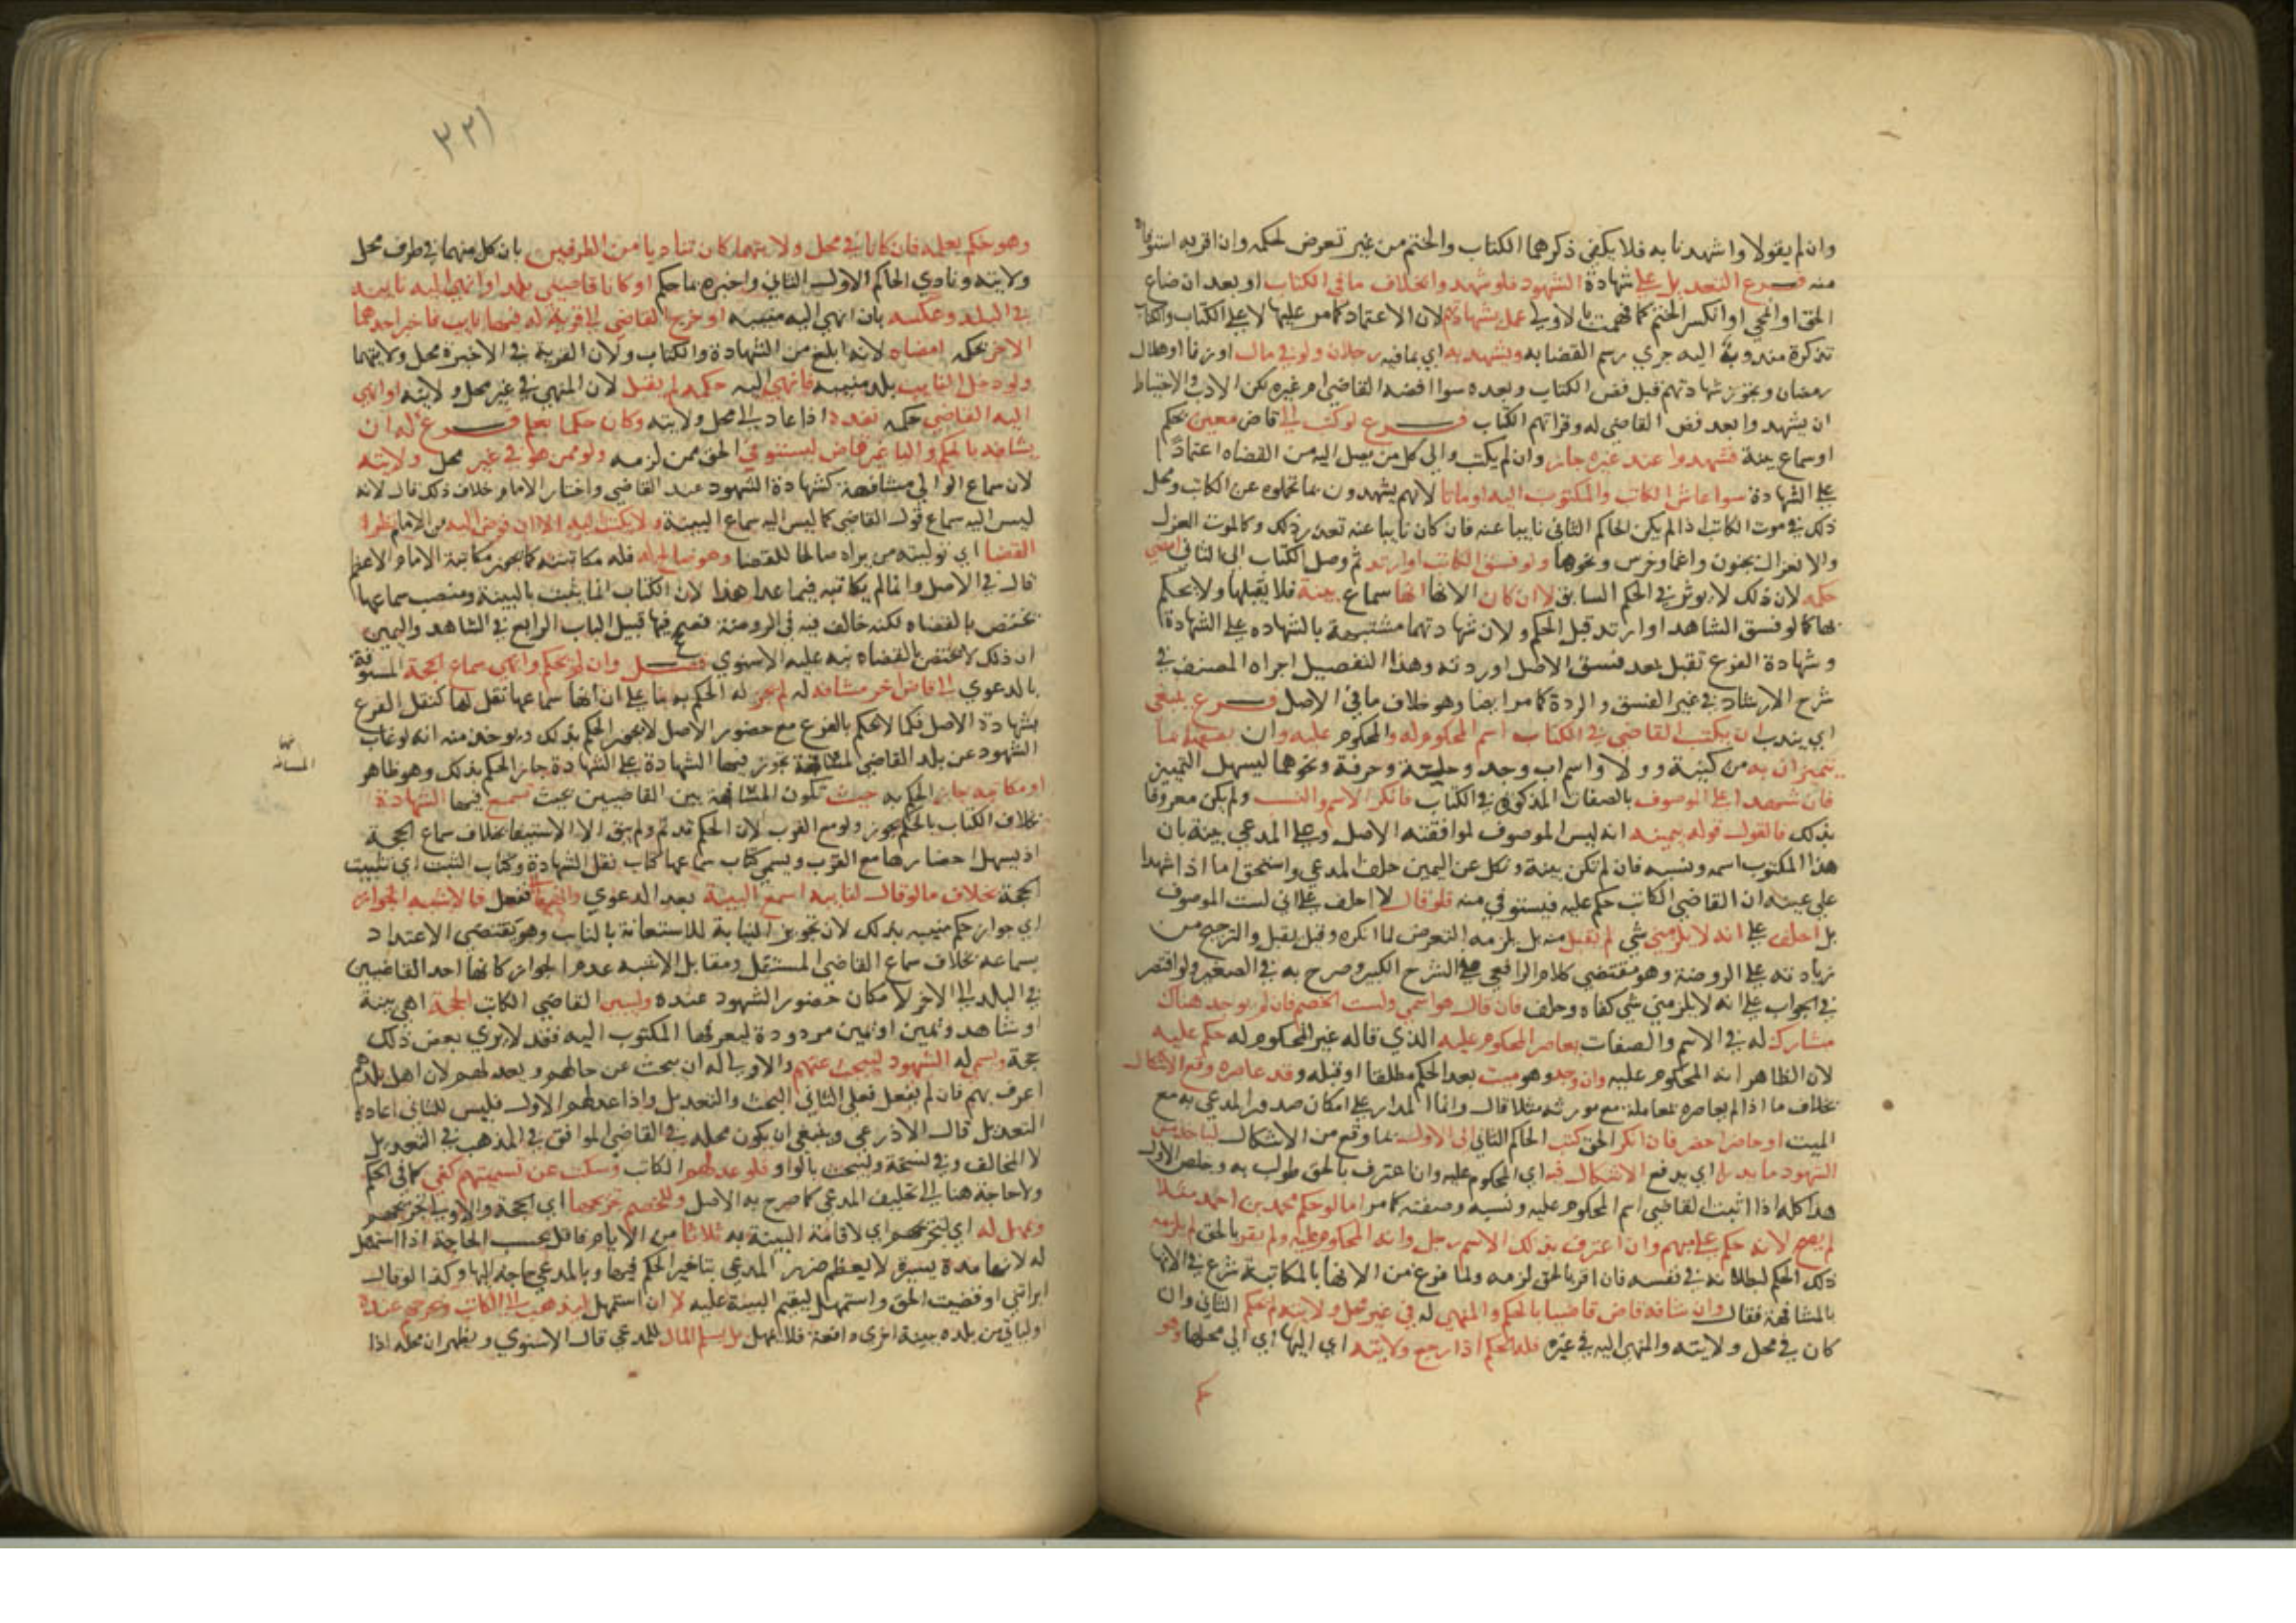 وان لم يقولا واشهدنا به فلا يكفي ذكرهما الكتاب والختم من غير تعرض لحكمه وان اقر به استوفاه
منه فرع التعديل على شهادة الشهود فلو شهدوا بخلاف ما في الكتاب او بعد ان ضاع
الحق او امحي او انكسر الختم كما فهمت بالاولى عمل بشهادتهم لان الاعتماد كما مر عليها لا على الكتاب والكتاب
تذكرة مندوبة اليه جري رسم القضا به ويشهد به اي بما فيه رجلان ولو في مال او زنا او هلال
رمضان ويجوز شهادتهم قبل فض الكتاب وبعده سوا افضه القاضي ام غيره لكن الادب والاحتياط
ان يشهدوا بعد فض القاضي له وقراتهم الكتاب فرع لو كتب الى قاض معين بحكم
او سماع بينة فشهدوا عند غيره جاز وان لم يكتب والى كل من يصل اليه من القضاه اعتمادا
على الشهادة سوا عاش الكاتب والمكتوب اليه او ماتا لانهم يشهدون بما تحملوه عن الكاتب ومحل
ذلك في موت الكاتب اذا لم يكن الحاكم الثاني نايبا عنه فان كان نايبا عنه تعذر ذلك وكالموت العزل
والانعزال بجنون واغما وخرس ونحوها ولو فسق الكاتب او ارتد ثم وصل الكتاب الى الثاني امضي
حكمه لان ذلك لا يوثر في الحكم السابق لا ان كان الانها انها سماع بينة فلا يقبلها ولا يحكم
بها كما لو فسق الشاهد او ارتد قبل الحكم ولان شهادتهما مشتبهة بالشهاده على الشهادة
وشهادة الفرع تقبل بعد فسق الاصل او ردته وهذا التفصيل اجراه المصنف في
شرح الارشاد في غير الفسق والردة كما مر ايضا وهو خلاف ما في الاصل فرع ينبغي
اي يندب ان يكتب القاضي في الكتاب اسم المحكوم له والمحكوم عليه وان
يتميزان به من كنية وولا واسم اب وجد وحلية وحرفة ونحوهما ليسهل التمييز
فان شهدا على الموصوف بالصفات المذكورة في الكتاب فانكر الاسم والنسب ولم يكن معروفا
بذلك فالقول قوله بيمينه انه ليس الموصوف لموافقته الاصل وعلى المدعي بينة بان
هذا المكتوب اسمه ونسبه فان لم تكن بينة ونكل عن اليمين حلف المدعي واستحق اما اذا شهدا
على عينه ان القاضي الكاتب حكم عليه فيستوفي منه فلو قال لا احلف على اني لست الموصوف
بل احلف على انه لا يلزمني شي لم يقبل منه بل يلزمه التعرض لما انكره وقيل يقبل والترجيح من
زيادته على الروضة وهو مقتضى كلام الرافعي في الشرح الكبير وصرح به في الصغير ولو اقتصر
في الجواب على انه لا يلزمني شي كفاه وحلف فان قال هو اسمي ولست الخصم فان لم يوجد هناك
مشارك له في الاسم والصفات يعاصر المحكوم عليه الذي قاله غير المحكوم له حكم عليه
لان الظاهر انه المحكوم عليه وان وجد وهو ميت بعد الحكم مطلقا او قبله وقد عاصره وقع الاشكال
بخلاف ما اذا لم يعاصره لمعاملة مع مورثه مثلا قال وانما المدار على امكان صدور المدعي به مع
الميت او حاضرا حضر فان انكر الحق كتب الحاكم الثاني الى الاول بما وقع من الاشكال
الشهود ما يدفع اي يدفع الاشكال فيه اي المحكوم عليه وان اعترف بالحق طولب به وخلص الاول
هذا كله اذا اثبت القاضي اسم المحكوم عليه ونسبه وصفته كما مر اما لو حكم محمد بن احمد مثلا
لم يصح لانه حكم على مبهم وان اعترف بذلك الاسم رجل وانه المحكوم عليه ولم يقر بالحق لم يلزمه
ذلك الحكم لبطلانه في نفسه فان اقر بالحق لزمه ولما فرغ من الانها بالمكاتبة شرع في الانها
بالمشافهة فقال وان شافه قاض قاضيا بالحكم والمنهي له في غير محل ولايته لم يحكم الثاني وان
كان في محل ولايته والمنهي اليه في غيره فله الحكم اذا رجع ولايته اي اليها اي الى محلها وهو
حكم
٣٢١
وهو حكم بعلمه فان كانا في محل ولايتهما كان تناديا من الطرفين بان كل منهما في طرف محل
ولايته ونادي الحاكم الاول الثاني واخبره بما حكم او كانا قاضيين ببلد او انهي اليه نايبه
في البلد وعكسه بان انهي اليه منيبه او خرج القاضي الى قرية له فيها نايب فاخبر احدهما
الاخر بحكمه امضاه لانه ابلغ من الشهادة والكتاب ولان القرية في الاخيرة محل ولايتهما
ولو دخل النايب بلد منيبه فانهي اليه حكمه لم يقبل لان المنهي في غير محل ولايته او انهي
اليه القاضي حكمه نفذه اذا عاد الى محل ولايته وكان حكما بعلم فرع له ان
يشافه بالحكم واليا غير قاض ليستوفي الحق ممن لزمه ولو ممن هو في غير محل ولايته
لان سماع الوالي مشافهة كشهادة الشهود عند القاضي واختار الامام خلاف ذلك قال لانه
ليس اليه سماع قول القاضي كما ليس اليه سماع البينة ولا يكتب اليه الا ان فوض اليه من الامام نظر
القضا اي تولية من يراه صالحا للقضا وهو صالح له فله مكاتبته كما يجوز مكاتبة الامام الاعظم
قال في الاصل وانما لم يكاتبه فيما عدا هذا لان الكتاب انما يثبت بالبينة ومنصب سماعها
يختص بالقضاه لكنه خالف فيه في الروضة فصحح فيها قبيل الباب الرابع في الشاهد واليمين
ان ذلك لا يختص بالقضاه نبه عليه الاسنوي فصل وان لم يحكم وانهي سماع الحجة المسبوقة
بالدعوي الى قاض اخر مشافهة له لم يجز له الحكم به بنا على ان انها سماعها نقل لها كنقل الفرع
شهادة الاصل فكما لا يحكم بالفرع مع حضور الاصل لا يجوز الحكم بذلك ويوخذ منه انه لو غاب
الشهود عن بلد القاضي لمسافة يجوز فيها الشهادة على الشهادة جاز الحكم بذلك وهو ظاهر
او مكاتبة جاز الحكم به حيث تكون المسافة بين القاضيين بحيث تسمع فيها الشهادة
بخلاف الكتاب بالحكم يجوز ولو مع القرب لان الحكم قد تم ولم يبق الا الاستيفا بخلاف سماع الحجة
اذ يسهل احضارها مع القرب ويسمي كتاب سماعها كتاب نقل الشهادة وكتاب التثبت اي تثبيت
الحجة بخلاف ما لو قال لنايبه اسمع البينة بعد الدعوي وانهها ففعل فالاشبه الجواز
اي جواز حكم منيبه بذلك لان تجويز النيابة للاستعانة بالنايب وهو يقتضي الاعتداد
بسماعه بخلاف سماع القاضي المستقل ومقابل الاشبه عدم الجواز كانها احد القاضيين
في البلد الى الاخر لامكان حضور الشهود عنده وليبين القاضي الكاتب الحجة اهي بينة
او شاهد ويمين او يمين مردودة ليعرفها المكتوب اليه فقد لا يري بعض ذلك
حجة ويسمي له الشهود ليبحث عنهم والاولى له ان يبحث عن حالهم ويعد لهم لان اهل بلدهم
اعرف بهم فان لم يفعل فعلي الثاني البحث والتعديل واذا عدلهم الاول فليس للثاني اعادة
التعديل قال الاذرعي وينبغي ان يكون محله في القاضي الموافق في المذهب في التعديل
لا المخالف وفي نسخة ويبحث بالواو فلو عدلهم الكاتب وسكت عن تسميتهم كفى كما في الحكم
ولا حاجة هنا الى تحليف المدعي كما صرح به الاصل وللخصم تجريحها اي الحجة والاولى تجريحهم
ويمهل له اي لتجريحهم اي لاقامة البينة به ثلاثا من الايام فاقل بحسب الحاجة اذا استمهل
له لانها مدة يسيرة لا يعظم ضرر المدعي بتاخير الحكم فيها وبالمدعي حاجة اليها وكذا لو قال
ابراتني او قضيت الحق واستمهل ليقيم البينة عليه لا ان استمهل ليذهب الى الكاتب ويجرحهم عنده
او لياتي من بلده ببينة اخرى دافعة فلا يمهل بل يسلم المال للمدعي قال الاسنوي ويظهر ان محله اذا